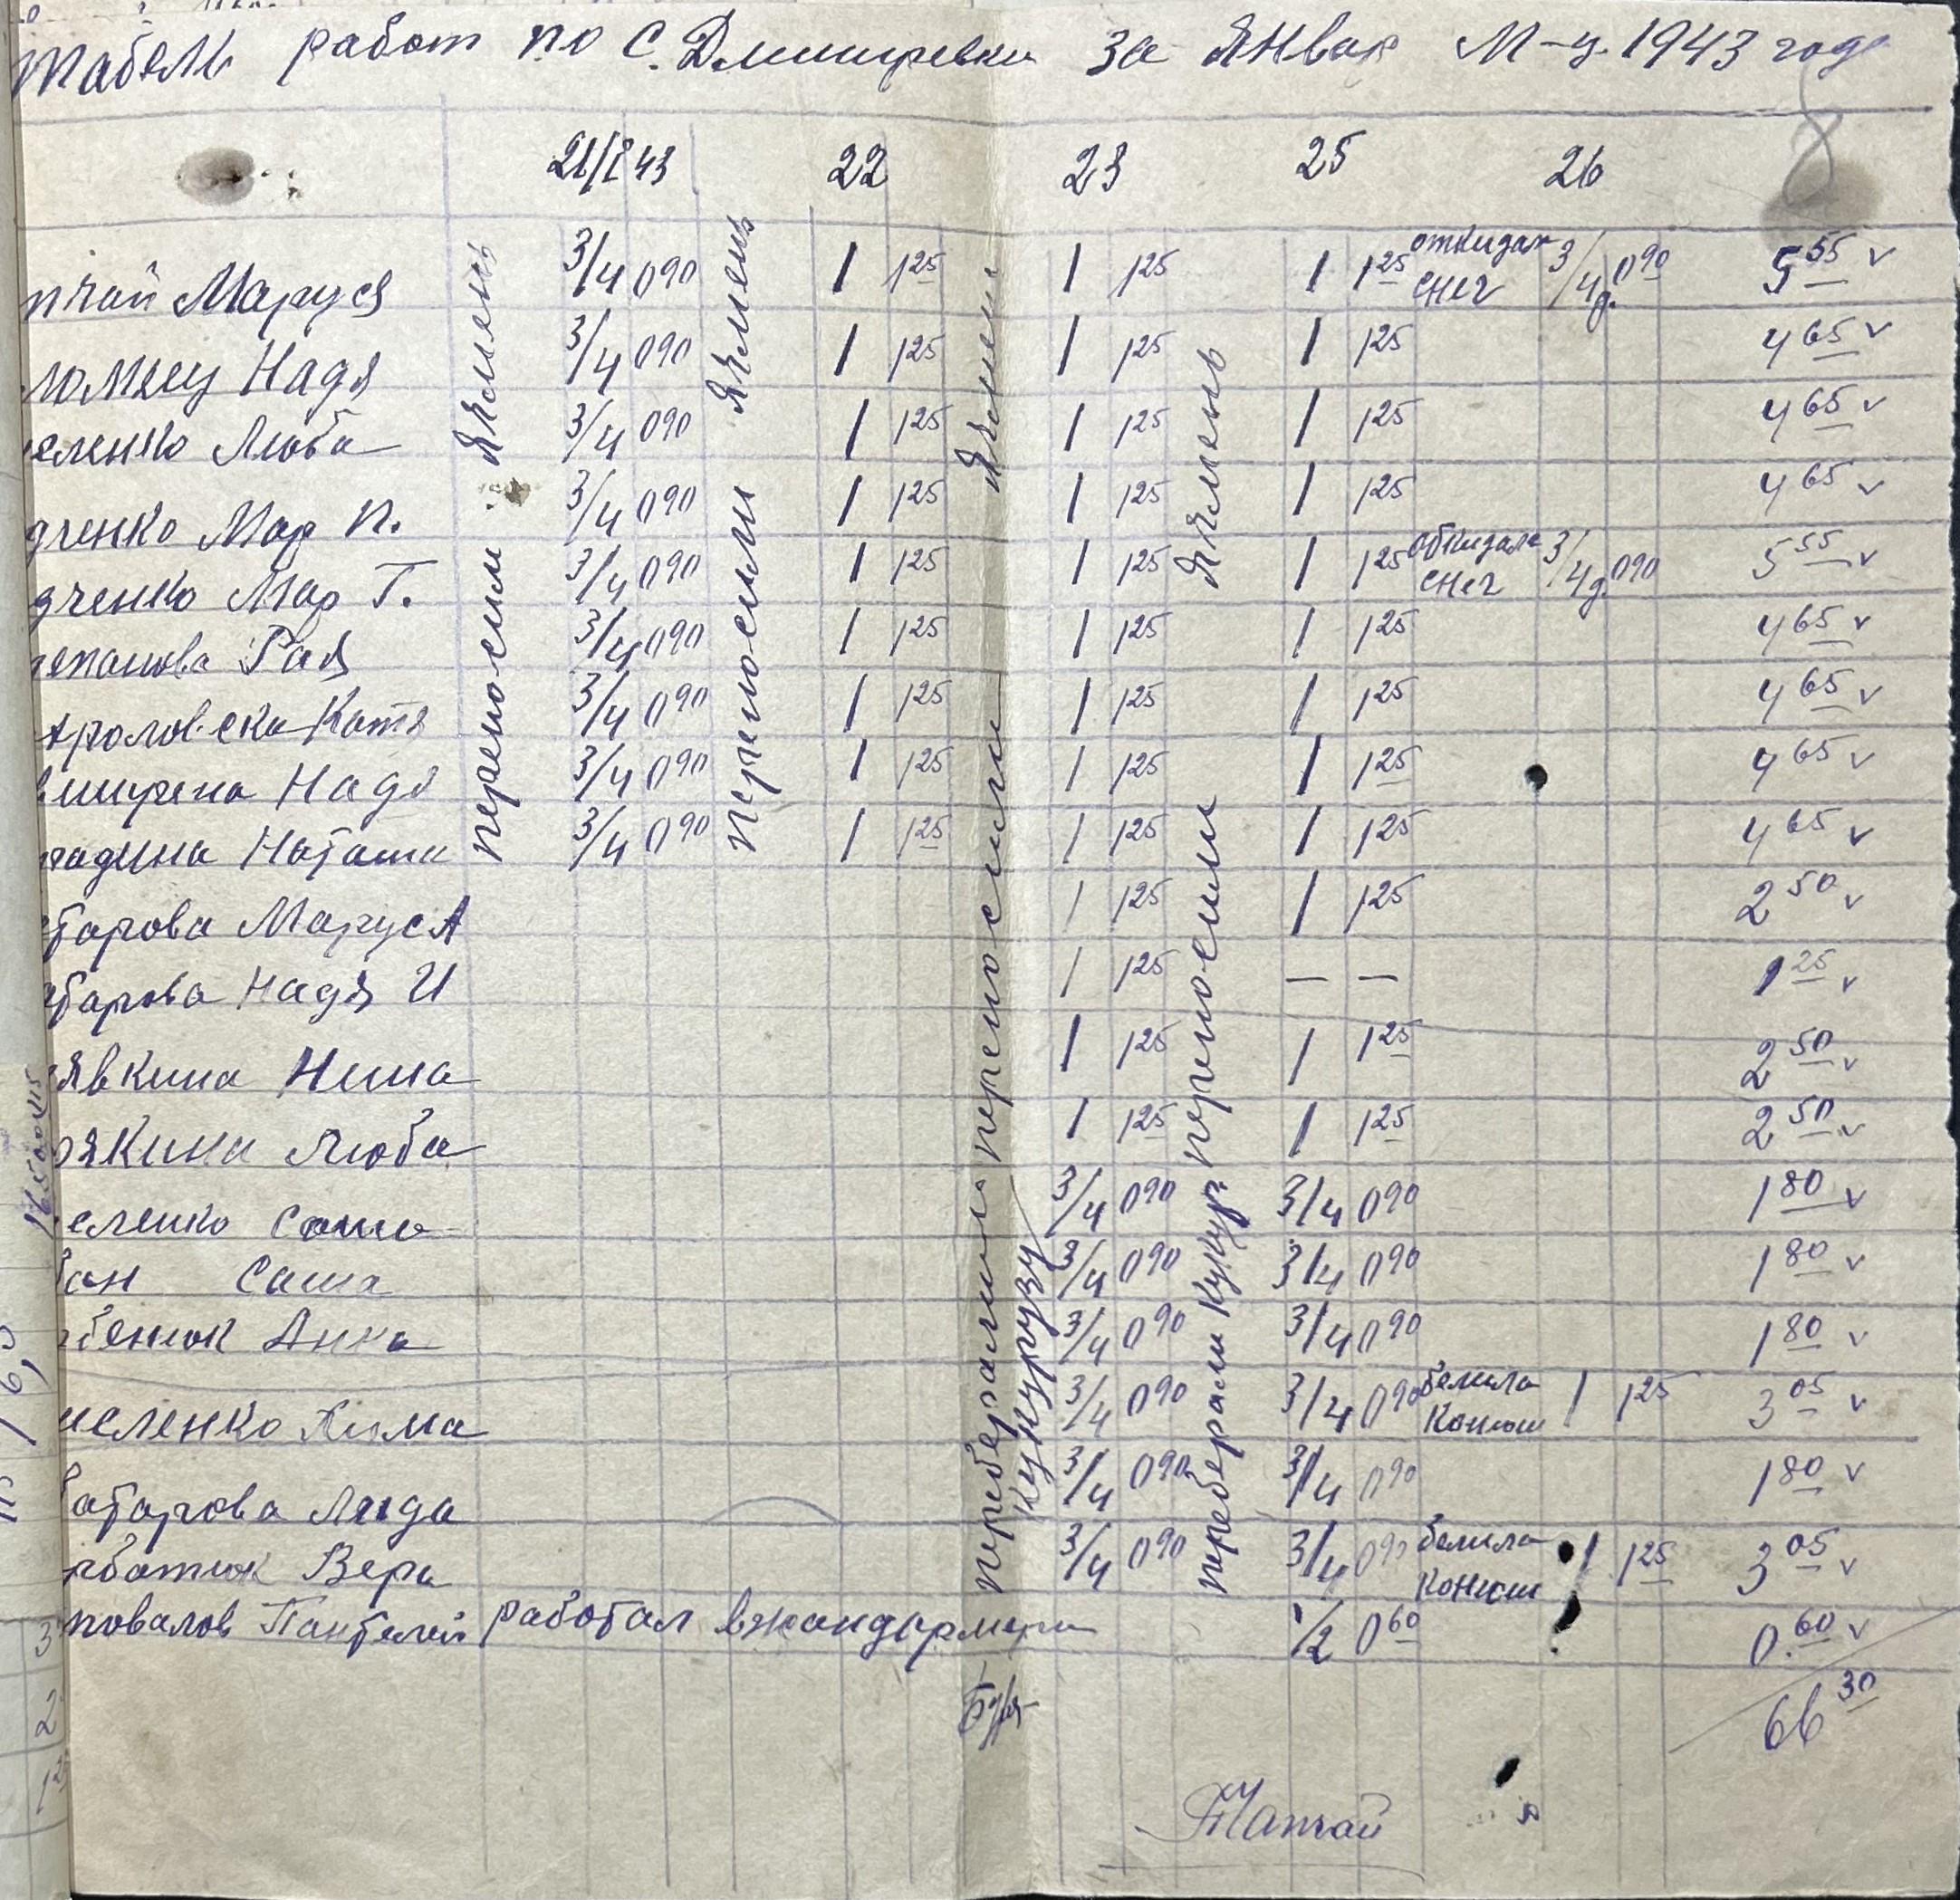 Табель работ по с. Дмитревки за Январ М-ц 1943 года
8
21/I 43 22 23 25 26
пчай Маруся 3/4 0 90 1 1 25 1 1 25 1 1 25 откидал снег 3/4 д. 0 90 5 55 v
ломиец Надя 3/4 0 90 1 1 25 1 1 25 1 1 25 4 65 v
еленко Люба 3/4 0 90 1 1 25 1 1 25 1 1 25 4 65 v
дченко Мар П. 3/4 0 90 1 1 25 1 1 25 1 1 25 4 65 v
дченко Мар Т. 3/4 0 90 1 1 25 1 1 25 1 1 25 обкидала снег 3/4 д. 0 90 5 55 v
епанова Рая 3/4 0 90 1 1 25 1 1 25 1 1 25 4 65 v
Катя 3/4 0 90 1 1 25 1 1 25 1 1 25 4 65 v
Надя 3/4 0 90 1 1 25 1 1 25 1 1 25 4 65 v
Наташа 3/4 0 90 1 1 25 1 1 25 1 1 25 4 65 v
тарова Маруся 1 1 25 1 1 25 2 50 v
тарова Надя И 1 1 25 — — 1 25 v
явкина Нина 1 1 25 1 1 25 2 50 v
якина Люба 1 1 25 1 1 25 2 50 v
еленко Саша 3/4 0 90 3/4 0 90 1 80 v
ан Саша 3/4 0 90 3/4 0 90 1 80 v
бенюк Анна 3/4 0 90 3/4 0 90 1 80 v
меленко Хима 3/4 0 90 3/4 0 90 белила Конюш 1 1 25 3 05 v
атарова Лида 3/4 0 90 3/4 0 90 1 80 v
рбатюк Вера 3/4 0 90 3/4 0 90 белила Конюш 1 1 25 3 05 v
повалов Пантелей работал в жандармери 1/2 0 60 0.60 v
66 30
переносили Ячмень
переносили Ячмень
переносили Ячмень
перебрали Кукурузу
переносили Ячмень
перебрали Кукуруз
Тапчай